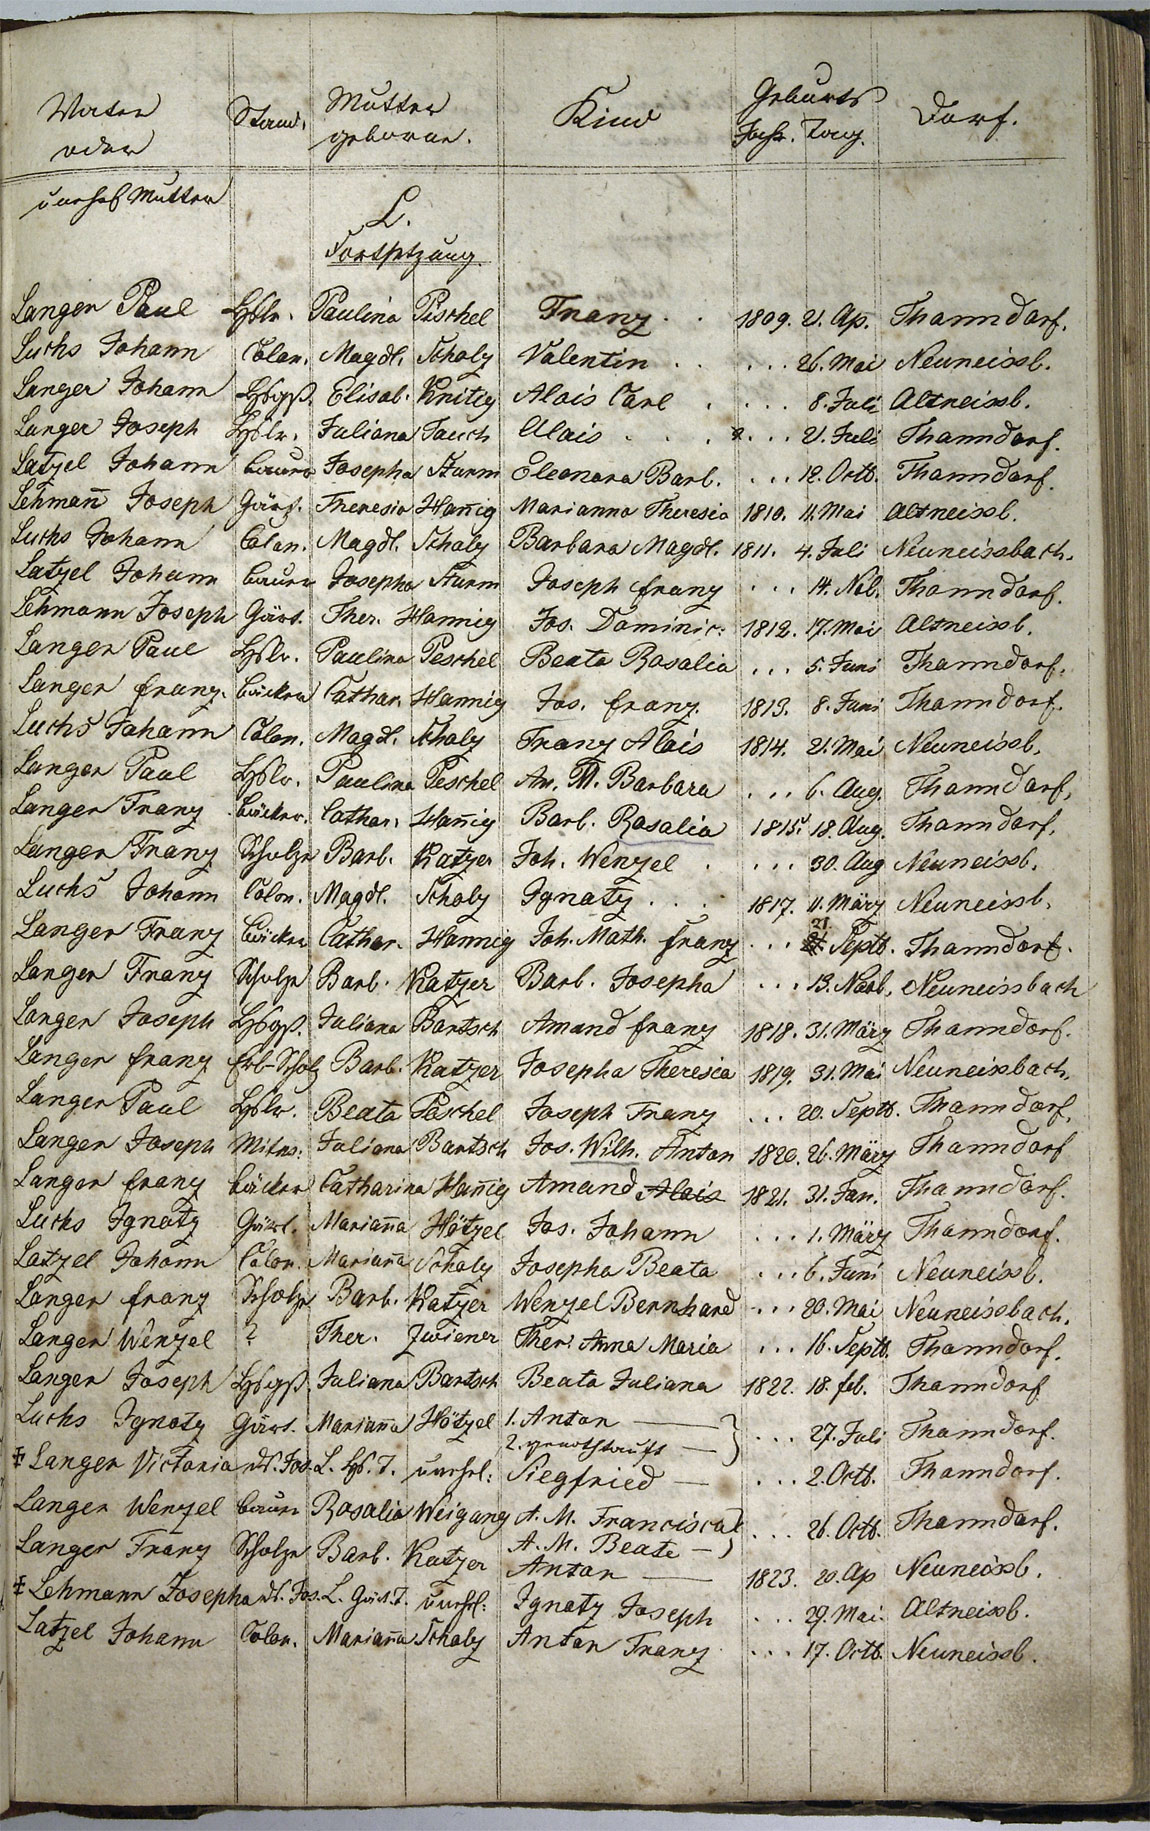 Vater Stand. Mutter Kind Geburts Dorf.
oder geborne. Jahr. Tag.
unehel Mutter
L.
Fortsetzung.
Langer Paul Hßlr. Paulina Peschel Franz . . 1809. 21. Ap. Thanndorf.
Luchs Johann Colon. Magdl. Scholz Valentin . . ... 26. Mai Neuneissb.
Langer Johann Hßgß. Elisab. Knitig Alois Carl . ... 8. Juli Altneissb.
Langer Joseph Hßlr. Juliana Tauch Alois . . . . ... 21. Juli Thanndorf.
Latzel Johann Bauer Josepha Sturm Eleonora Barb. ... 12. Octb. Thanndorf.
Lehmañ Joseph Gärt. Theresia Hañig Marianna Theresia 1810. 11. Mai Altneissb.
Luchs Johann Colon. Magdl. Scholz Barbara Magdl. 1811. 4. Juli Neuneissbach.
Latzel Johann Bauer Josepha Sturm Joseph Franz ... 14. Nob. Thanndorf.
Lehmann Joseph Gärt. Ther. Hannig Jos. Dominic. 1812. 17. Mai Altneissb.
Langer Paul Hßlr. Paulina Peschel Beata Rosalia ... 5. Juni Thanndorf.
Langer Franz. Bäcker Cathar. Hannig Jos. Franz. 1813. 8. Juni Thanndorf.
Luchs Johann Colon. Magd. Scholz Franz Alois 1814. 21. Mai Neuneissb.
Langer Paul Hßlr. Paulina Peschel An. M. Barbara ... 6. Aug. Thanndorf.
Langer Franz Bäcker. Cathar. Hañig Barb. Rosalia 1815. 18. Aug. Thanndorf.
Langer Franz Scholze Barb. Katzer Joh. Wenzel . ... 30. Aug Neuneissb.
Luchs Johann Colon. Magdl. Scholz Ignatz . . . 1817. 11. März Neuneissb.
Langer Franz Bäcker Cathar. Hannig Joh. Math. Franz ... 21 Septb. Thanndorf.
Langer Franz Scholze Barb. Katzer Barb. Josepha ... 13. Novb. Neuneissbach
Langer Joseph Hßgß. Juliana Bartsch Amand Franz 1818. 31. März Thanndorf.
Langer Franz Erb-Scholz Barb. Katzer Josepha Theresia 1819. 31. Mai Neuneissbach.
Langer Paul Hßlr. Beata Paschel Joseph Franz ... 20. Septb. Thanndorf.
Langer Joseph Juliana Bartsch Jos. Wilh. Anton 1820. 26. März Thanndorf
Langer Franz Bäcker Catharina Hañig Amand Alois 1821. 31. Jan. Thanndorf.
Luchs Ignatz Gärt. Mariañа Hötzel Jos. Johann ... 1. März Thanndorf.
Latzel Johann Colon. Mariañа Scholz Josepha Beata ... 6. Juni Neuneissb.
Langer Franz Scholze Barb. Katzer Wenzel Bernhard ... 20. Mai Neuneissbach.
Langer Wenzel ? Ther. Zwiener Ther. Anna Maria ... 16. Septb. Thanndorf.
Langer Joseph Hßgß. Juliana Bartsch Beata Juliana 1822. 18. feb. Thanndorf
Luchs Ignatz Gärt. Mariañа Hötzel 1. Anton — } ... 27. Juli Thanndorf.
2. genothtauft —
‡ Langer Victoria ds. Jos. L. Hß. T. unehel: Siegfried — ... 2. Octb. Thanndorf.
Langer Wenzel Bauer Rosalia Weigang A. M. Francisca } ... 26. Octb. Thanndorf.
A. M. Beate —
Langer Franz Scholze Barb. Katzer Anton — 1823. 20. Ap Neuneissb.
‡ Lehmann Josepha ds. Jos. L. Gärt. T. unehel: Ignatz Joseph ... 29. Mai. Altneissb.
Latzel Johann Colon. Mariañа Scholz Anton Franz ... 17. Octb. Neuneissb.